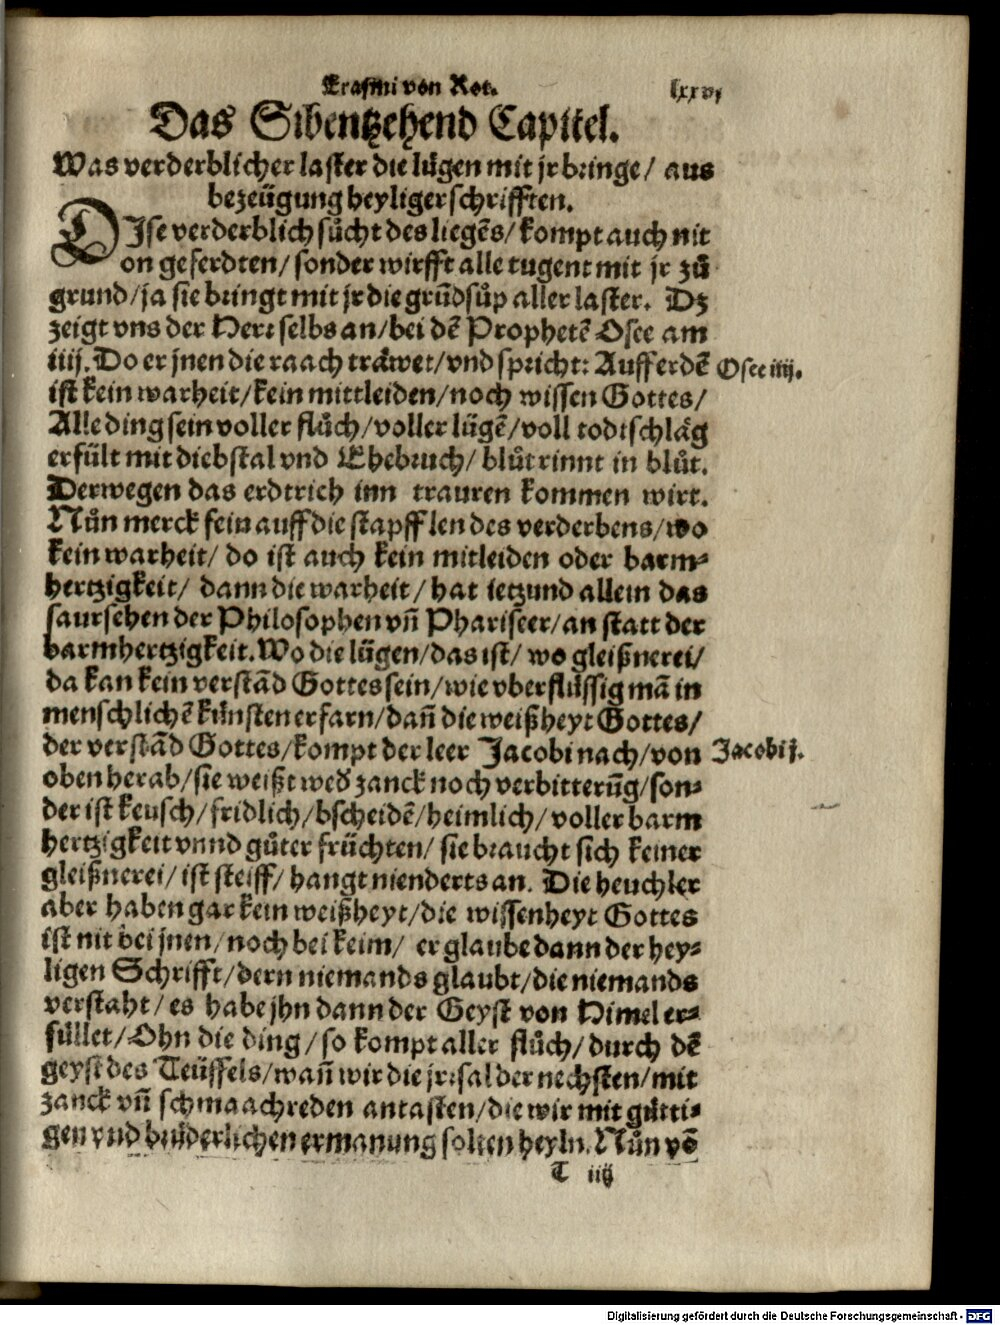 Erasmi von Rot. lxxvj
Das Sibentzehend Capitel.
Was verderblicher laster die lügen mit jr bringe/ aus
bezeügung heyliger schrifften.
DIse verderblich sücht des liegẽs/ kompt auch nit
on geferdten/ sonder wirfft alle tugent mit jr zů
grund/ ja sie bringt mit jr die grũdsůp aller laster. Dz
zeigt vns der Herr selbs an/ bei dẽ Prophetẽ Osee am
iiij. Do er jnen die raach tråwet/ vnd spricht: Auff erdẽ
Osee iiij.
ist kein warheit/ kein mittleiden/ noch wissen Gottes/
Alle ding sein voller flůch/ voller lügẽ/ voll todtschläg
erfült mit diebstal vnd Ehebruch/ blůt rinnt in blůt.
Derwegen das erdtrich inn trauren kommen wirt.
Nůn merck fein auff die stapfflen des verderbens/ wo
kein warheit/ do ist auch kein mitleiden oder barm⸗
hertzigkeit/ dann die warheit/ hat ietzund allein das
saursehen der Philosophen vñ Phariseer/ an statt der
barmhertzigkeit. Wo die lügen/ das ist/ wo gleißnerei/
da kan kein verstãd Gottes sein/ wie vberflüssig mã in
menschlichẽ künsten erfarn/ dañ die weißheyt Gottes/
der verstãd Gottes/ kompt der leer Jacobi nach/ von
Jacobi j.
oben herab/ sie weißt weď zanck noch verbitterũg/ son⸗
der ist keusch/ fridlich/ bscheidẽ/ heimlich/ voller barm
hertzigkeit vnnd gůter früchten/ sie braucht sich keiner
gleißnerei/ ist steiff/ hangt nienderts an. Die heuchler
aber haben gar kein weißheyt/ die wissenheyt Gottes
ist nit bei jnen/ noch bei keim/ er glaube dann der hey⸗
ligen Schrifft/ dern niemands glaubt/ die niemands
verstaht/ es habe jhn dann der Geyst von Himel er⸗
füllet/ Ohn die ding/ so kompt aller flůch/ durch dẽ
geyst des Teüffels/ wañ wir die jrrsal der nechsten/ mit
zanck vñ schmaachreden antasten/ die wir mit gütti⸗
gen vnd brüderlichen ermanung solten heyln. Nůn võ
T iiij
Digitalisierung gefördert durch die Deutsche Forschungsgemeinschaft - DFG